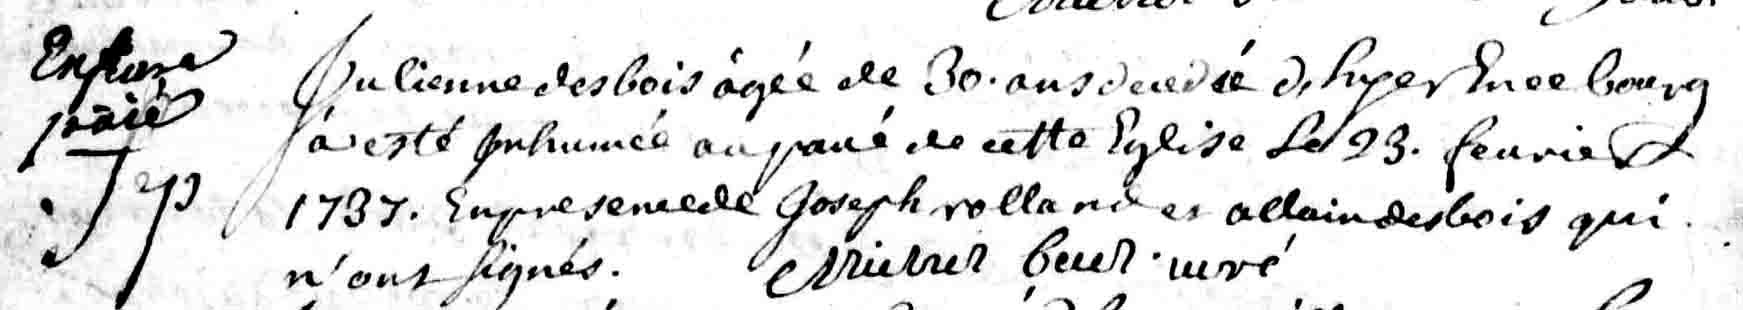 Enterré
payé
Julienne desbois âgée de 30. ans decedé d'hyer En ce bourg
a esté Inhumée au pavé de cette Eglise Le 23. fevrier
1737. En presence de Joseph rolland et allain desbois qui
n'ont signés. curé